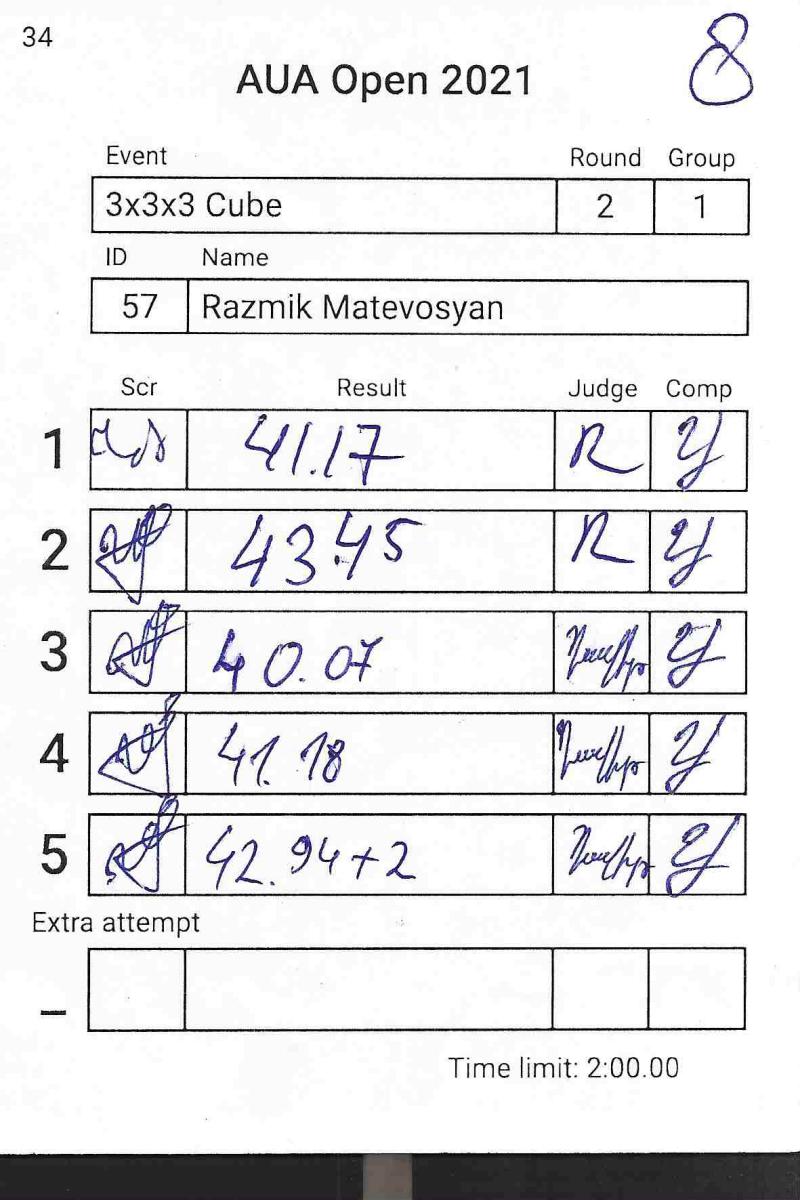 34
8
AUA Open 2021
Event Round Group
3x3x3 Cube 2 1
ID Name
57 Razmik Matevosyan
Scr Result Judge Comp
1 41.17 R
2 43.45 R
3 40.07
4 41.18
5 42.94+2
Extra attempt
_
Time limit: 2:00.00